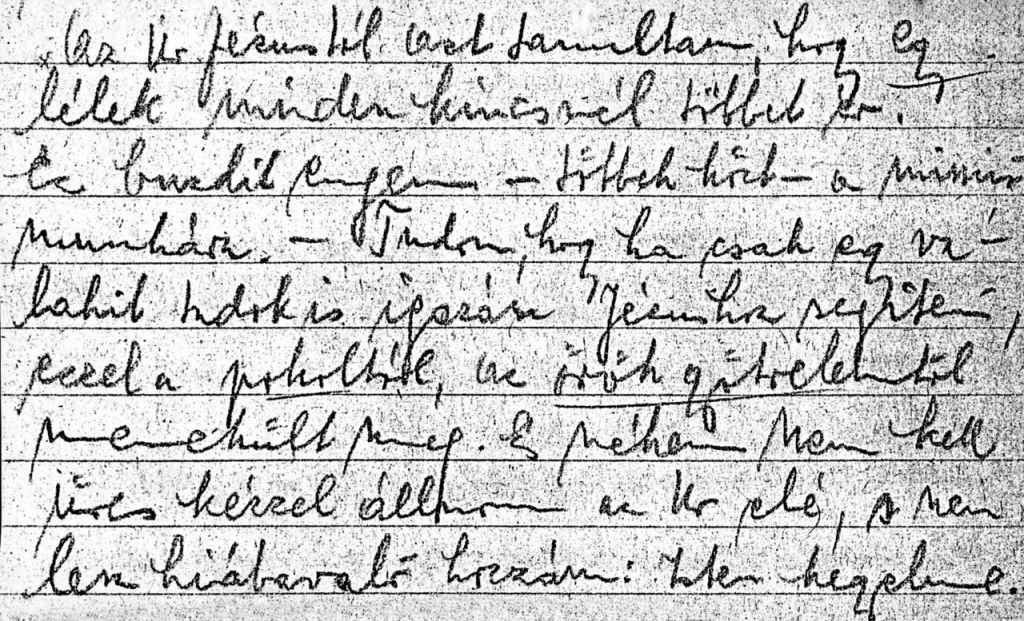 "Az Úr Jézustól azt tanultam, hog eg
lélek minden kincsnél többet ér.
Ez buzdít engem – többek közt – a missziói
munkára. – Tudom, hog ha csak eg va-
lakit tudok is igazán Jézushoz segíteni,
ezzel a pokoltól, az örök gyötrelemtől
menekült meg. És nékem nem kell
üres kézzel állnom az Úr elé, s nem
lesz hiábavaló hozzám: Isten kegyelme.